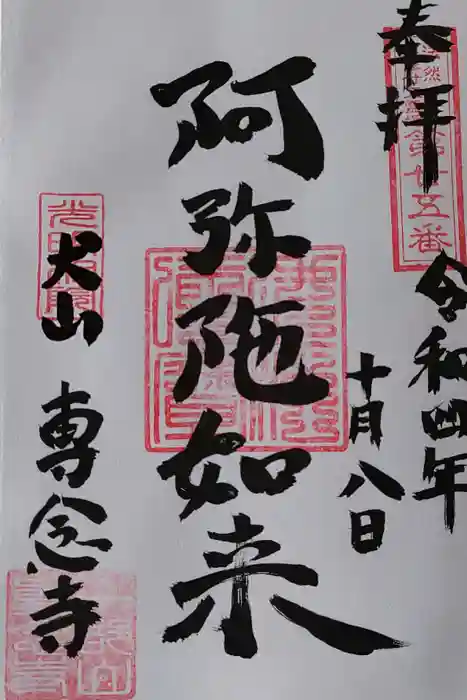 奉拝
第廿五番
令和四年
十月八日
阿弥陀如来
犬山
専念寺